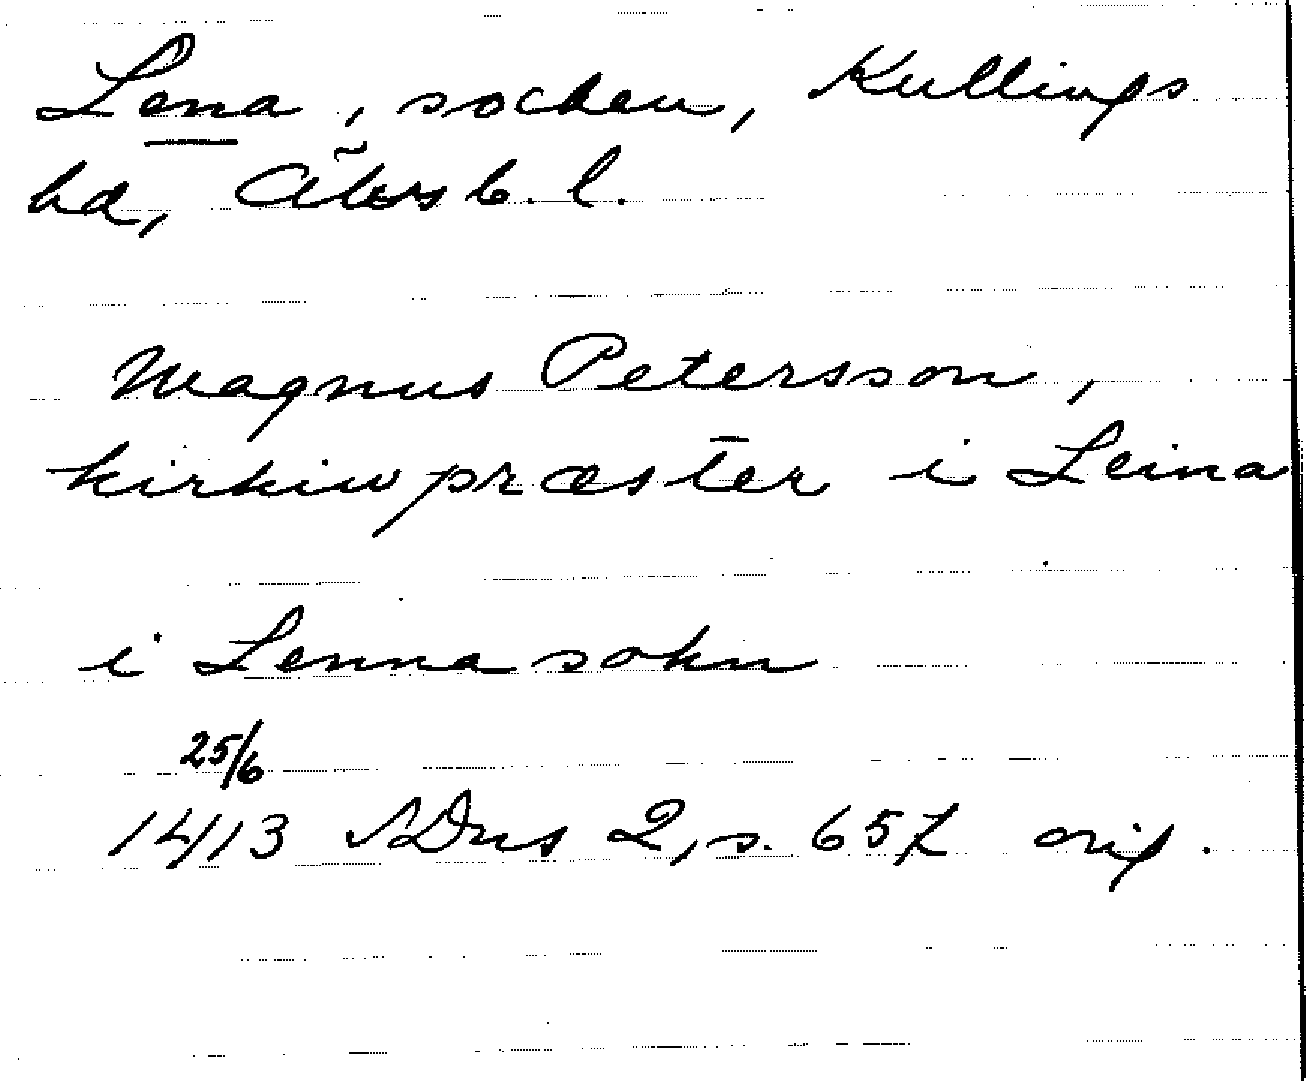 Lena, socken, Kullings
hd, Älvsb. l.
Magnus Petersson,
kirkiw præster i Leina
i Lenna sokn
25/6
1413 SDns 2, s. 657 orig.